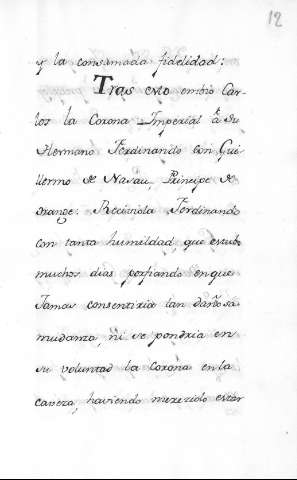 12
y la consumada fidelidad:
Tras esto embió Car
los la Corona Imperial á su
Hermano Ferdinando con Gui
llermo de Nasau Principe de
Orange. Recivióla Ferdinando
con tanta humildad, que estubo
muchos dias porfiando en que
Jamas consentiria tan dañosa
mudanza, ni se pondria en
su voluntad la Corona en la
caveza, haviendo merecido estar